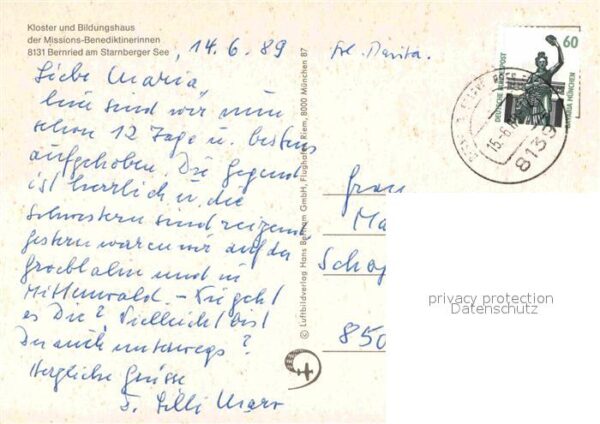 Kloster und Bildungshaus
der Missions-Benediktinerinnen
8131 Bernried am Starnberger See
14.6.89
Liebe Maria
hier sind wir nun
schon 12 Tage u. bestens
aufgehoben. Die Gegend
ist herrlich u. die
Schwestern sind reizend
gestern waren wir auf der
Groeblalm und in
Mittenwald. – Wie geht
es Dir? Vielleicht bist
Du auch unterwegs?
Herzliche Grüsse
Lilli
© Luftbildverlag Hans Bertram GmbH, Flughafen Riem, 8000 München 87
Frau
Ma
850
60
DEUTSCHE BUNDESPOST
BAVARIA MÜNCHEN
15.-6.
8139
privacy protection
Datenschutz